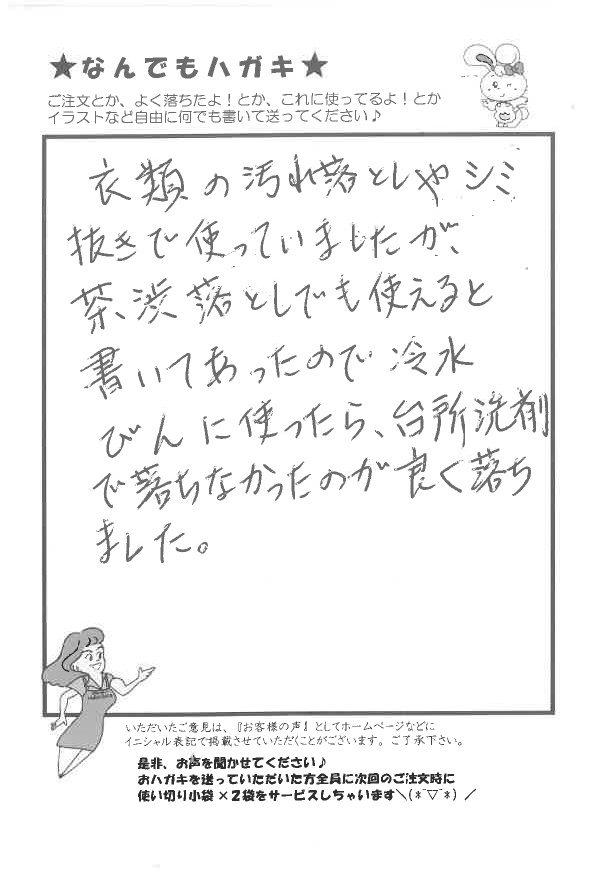 ★なんでもハガキ★
ご注文とか、よく落ちたよ！とか、これに使ってるよ！とか
イラストなど自由に何でも書いて送ってください♪
衣類の汚れ落としやシミ
抜きで使っていましたが、
茶渋落としでも使えると
書いてあったので冷水
びんに使ったら、台所洗剤
で落ちなかったのが良く落ち
ました。
いただいたご意見は、『お客様の声』としてホームページなどに
イニシャル表記で掲載させていただくことがございます。ご了承下さい。
是非、お声を聞かせてください♪
おハガキを送っていただいた方全員に次回のご注文時に
使い切り小袋×２袋をサービスしちゃいます＼(*¯▽¯*)／